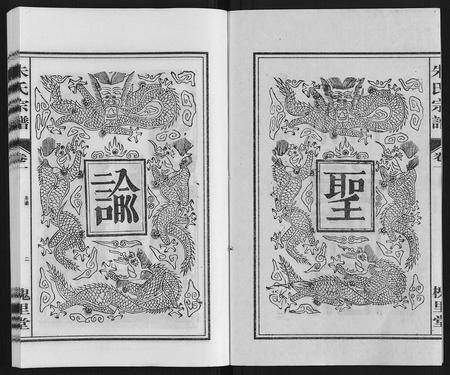 朱氏宗譜
卷一
槐里堂
聖
諭
朱氏宗譜
卷一
二
槐里堂